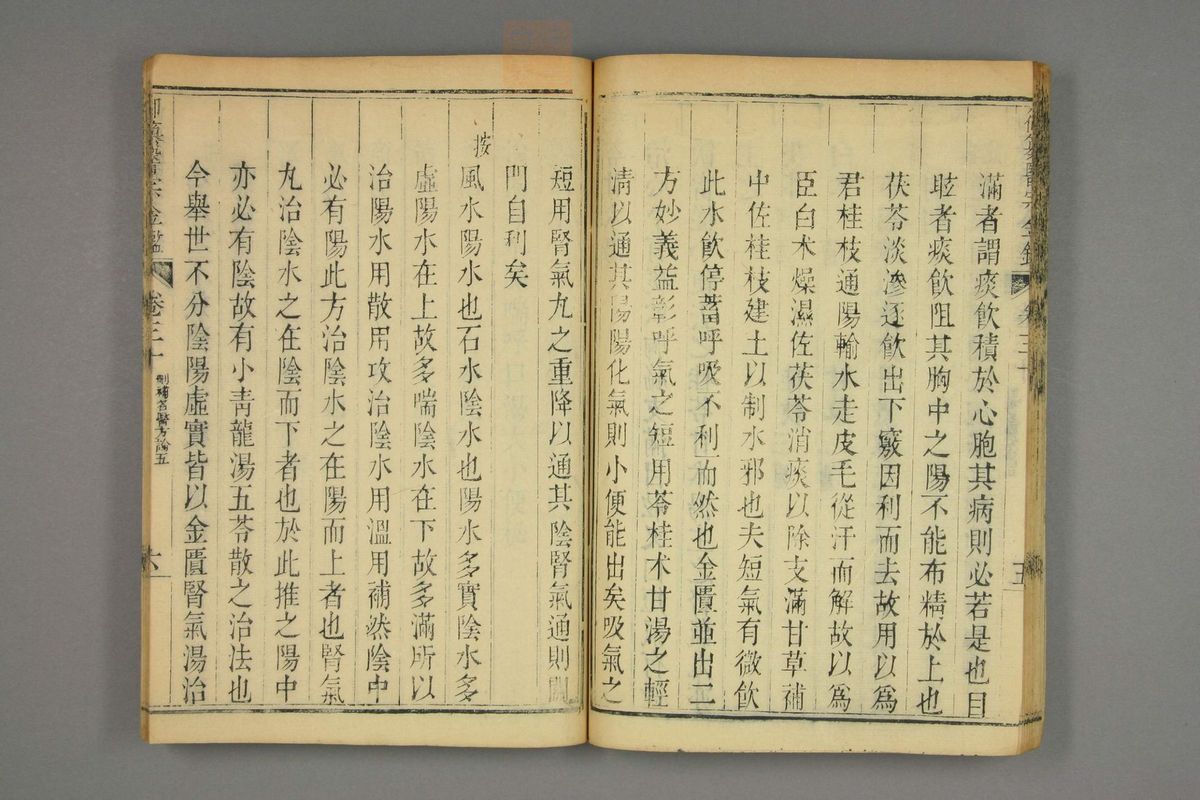 滿者謂痰飲積於心胞其病則必若是也目
眩者痰飲阻其胸中之陽不能布精於上也
茯苓淡滲逐飲出下竅因利而去故用以爲
君桂枝通陽輸水走皮毛從汗而解故以爲
臣白术燥濕佐茯苓消痰以除支滿甘草補
中佐桂枝建土以制水邪也夫短氣有微飲
此水飲停蓄呼吸不利而然也金匱並出二
方妙義益彰呼氣之短用苓桂术甘湯之輕
清以通其陽陽化氣則小便能出矣吸氣之
短用腎氣丸之重降以通其陰腎氣通則關
門自利矣
按
風水陽水也石水陰水也陽水多實陰水多
虛陽水在上故多喘陰水在下故多滿所以
治陽水用散用攻治陰水用溫用補然陰中
必有陽此方治陰水之在陽而上者也腎氣
丸治陰水之在陰而下者也於此推之陽中
亦必有陰故有小靑龍湯五苓散之治法也
今舉世不分陰陽虛實皆以金匱腎氣湯治
御纂醫宗金鑑
卷三十
刪補名醫方論五
六
五